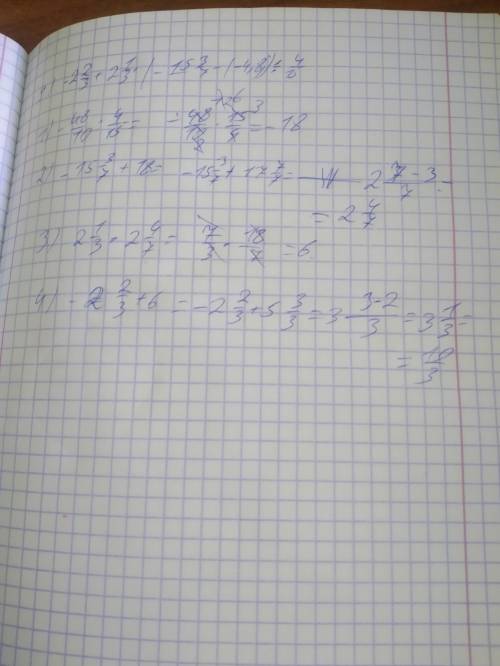 -2 2/3 + 2 1/3 · (-15 3/7 - (-4,8)) : 4/
1) -48/10 : 4/15 = -48/10 · 15/4 = -18
2) -15 3/7 + 18 = -15 3/7 + 17 7/7 = 2 7-3/7 =
= 2 4/7
3) 2 1/3 · 2 4/7 = 7/3 · 18/7 = 6
4) -2 2/3 + 6 = -2 2/3 + 5 3/3 = 3 3-2/3 = 3 1/3 =
= 10/3